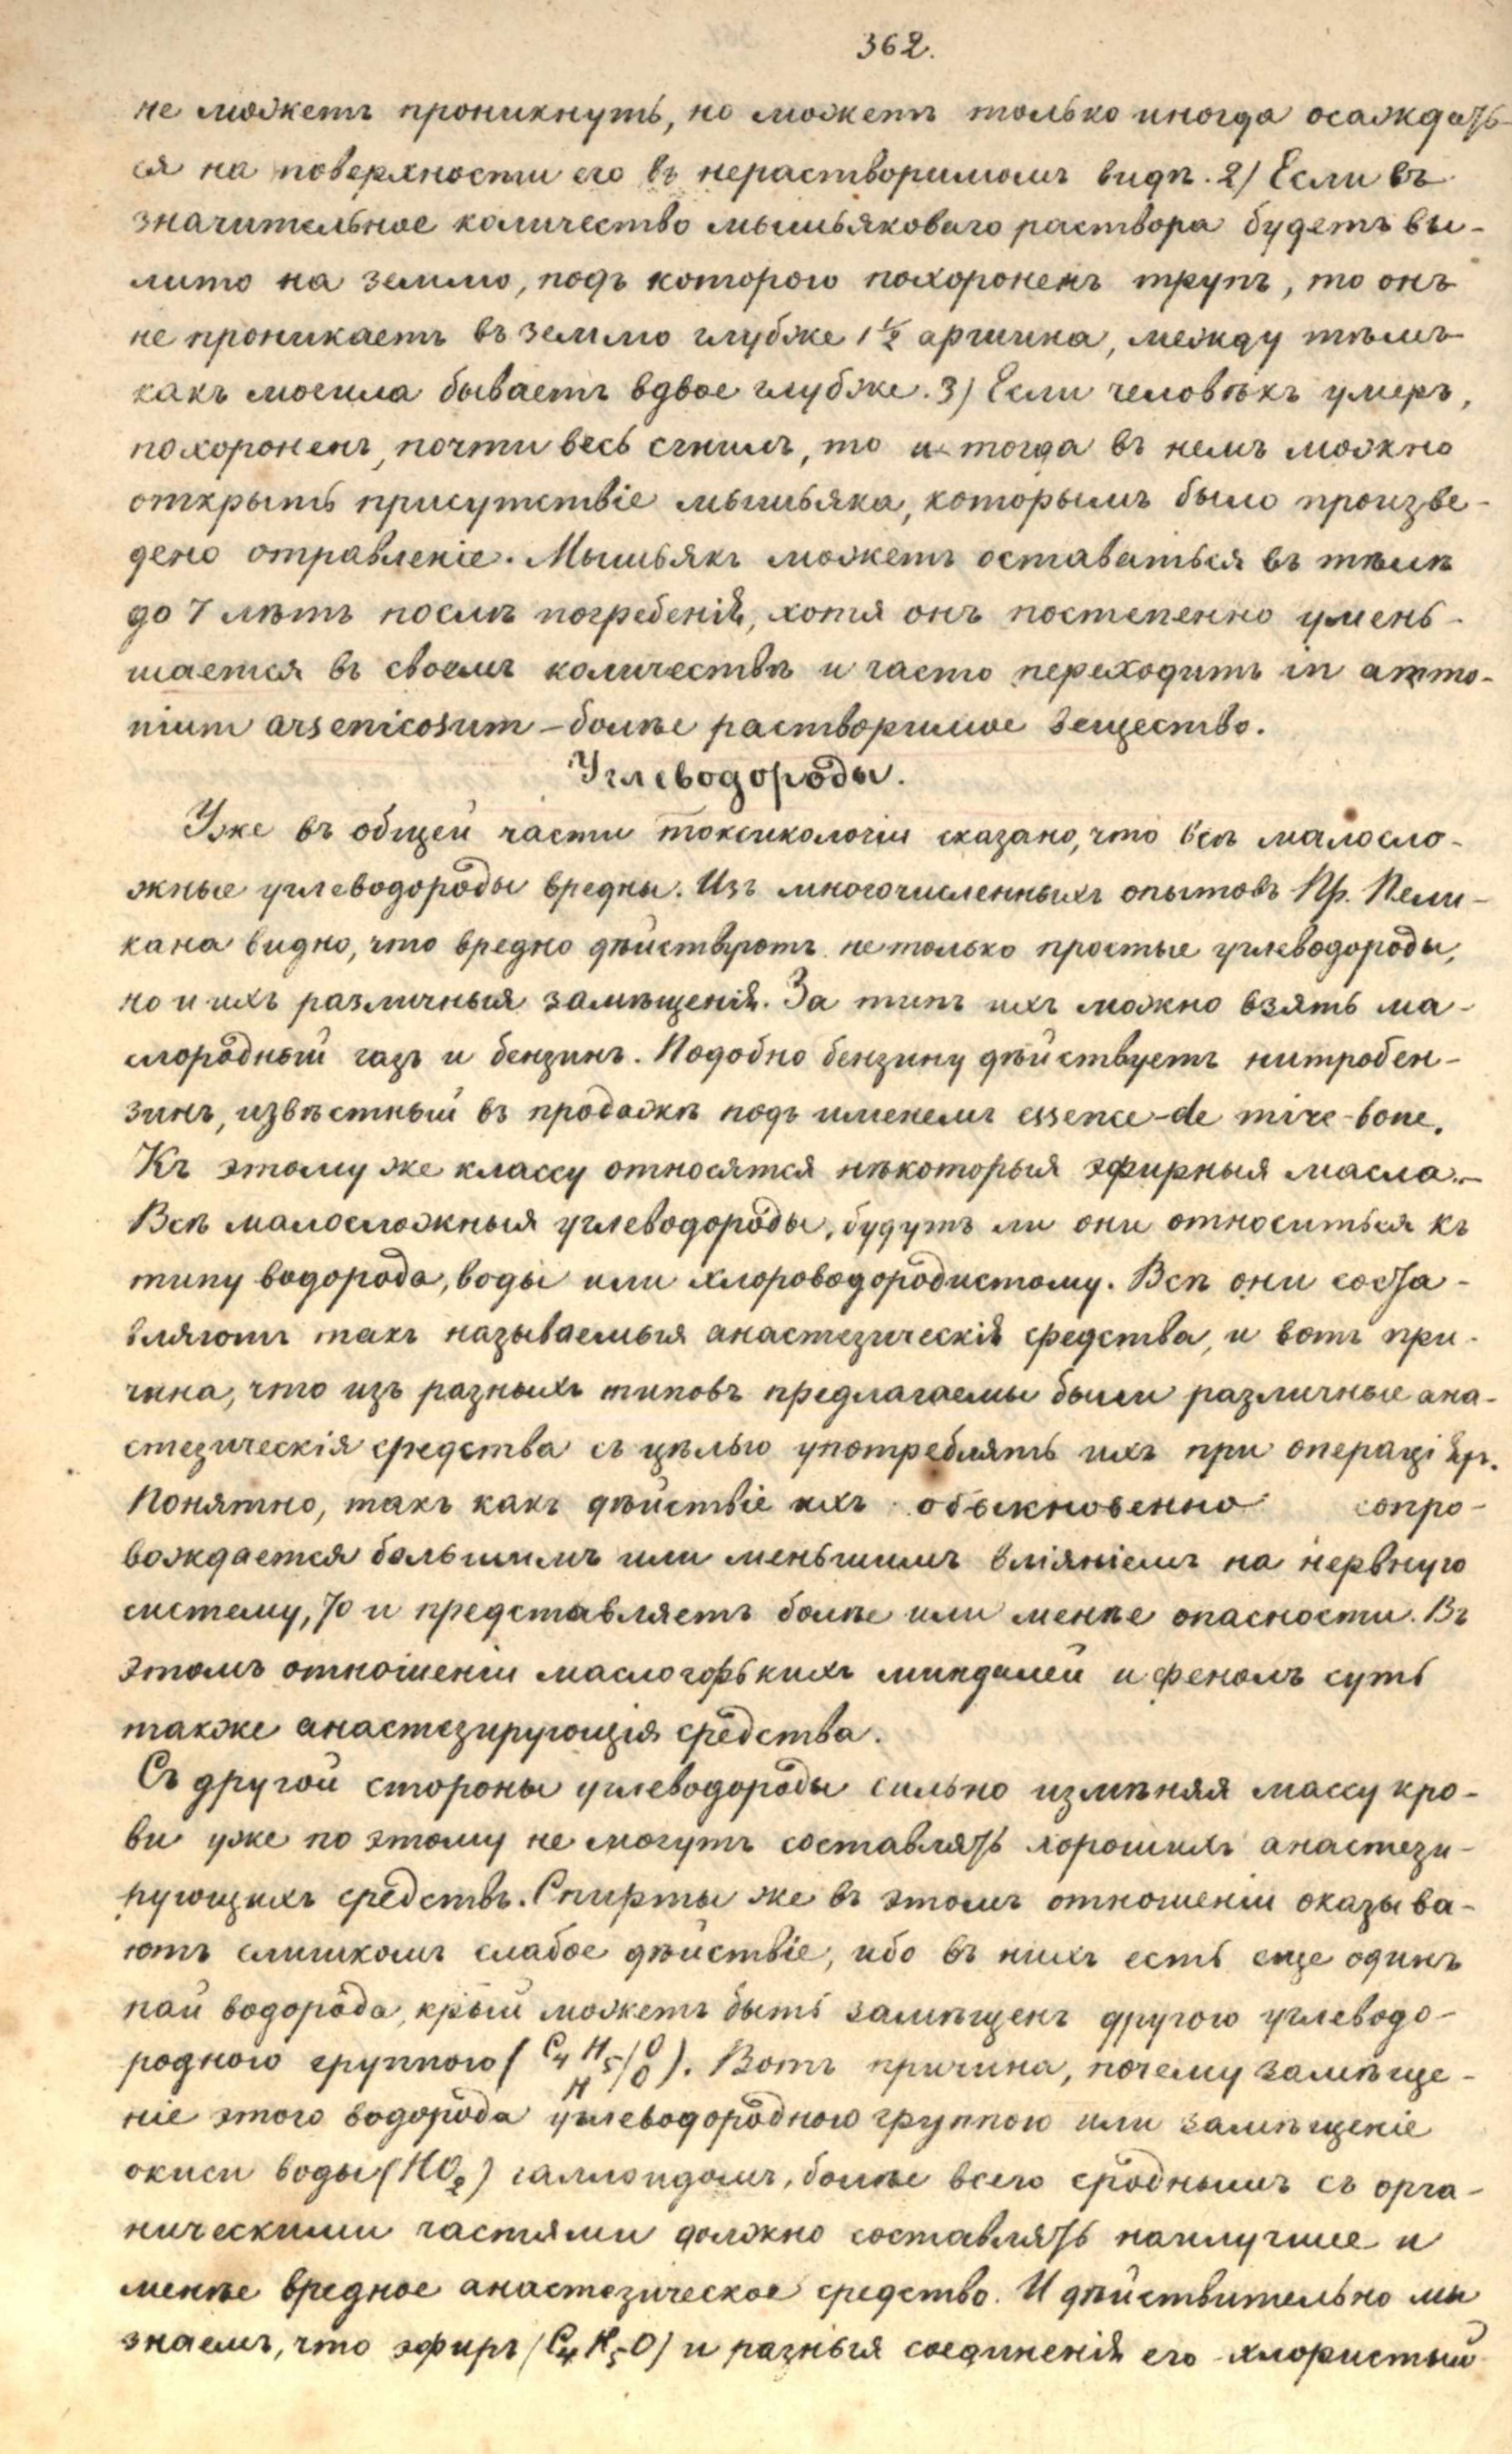 362.
не можетъ проникнуть, но можетъ только иногда осаждать-
ся на поверхности его въ нерастворимомъ видѣ. 2) Если въ
значительное количество мышьяковаго раствора будетъ вы-
лито на землю, подъ которою похороненъ трупъ, то онъ
не проникаетъ въ землю глубже 1½ аршина, между тѣмъ
какъ могила бываетъ вдвое глубже. 3) Если человѣкъ умеръ,
похороненъ, почти весь сгнилъ, то и тогда въ немъ можно
открыть присутствіе мышьяка, которымъ было произве-
дено отравленіе. Мышьякъ можетъ оставаться въ тѣлѣ
до 7 лѣтъ послѣ погребенія, хотя онъ постепенно умень-
шается въ своемъ количествѣ и часто переходитъ in ammo-
nium arsenicosum – болѣе растворимое вещество.
Углеводороды.
Уже въ общей части токсикологіи сказано, что всѣ малосло-
жные углеводороды вредны. Изъ многочисленныхъ опытовъ Пр. Пели-
кана видно, что вредно дѣйствуютъ не только простые углеводороды,
но и ихъ различныя замѣщенія. За типъ ихъ можно взять ма-
слородный газъ и бензинъ. Подобно бензину дѣйствуетъ нитробен-
зинъ, извѣстный въ продажѣ подъ именемъ essence-de mire-bone.
Къ этому же классу относятся нѣкоторыя эфирныя масла.–
Всѣ малосложныя углеводороды, будутъ ли они относиться къ
типу водорода, воды или хлороводородистому. Всѣ они соста-
вляютъ такъ называемыя анастезическія средства, и вотъ при-
чина, что изъ разныхъ типовъ предлагаемы были различные ана-
стезическія средства съ цѣлью употреблять ихъ при операціяхъ.
Понятно, такъ какъ дѣйствіе ихъ обыкновенно сопро-
вождается большимъ или меньшимъ вліяніемъ на нервную
систему, то и представляетъ болѣе или менѣе опасности. Въ
этомъ отношеніи масло горькихъ миндалей и фенолъ суть
также анастезирующія средства.
Съ другой стороны углеводороды сильно измѣняя массу кро-
ви уже по этому не могутъ составлять хорошихъ анастези-
рующихъ средствъ. Спирты же въ этомъ отношеніи оказыва-
ютъ слишкомъ слабое дѣйствіе, ибо въ нихъ есть еще одинъ
пай водорода, крый можетъ быть замѣщенъ другою углеводо-
родною группою (C₄H₅/H|O/O). Вотъ причина, почему замѣще-
ніе этого водорода углеводородною группою или замѣщеніе
окиси воды (HO₂) галлоидомъ, болѣе всего сроднымъ съ орга-
ническими частями должно составлять наилучшее и
менѣе вредное анастезическое средство. И дѣйствительно мы
знаемъ, что эфиръ (C₄H₅O) и разныя соединенія его – хлористый